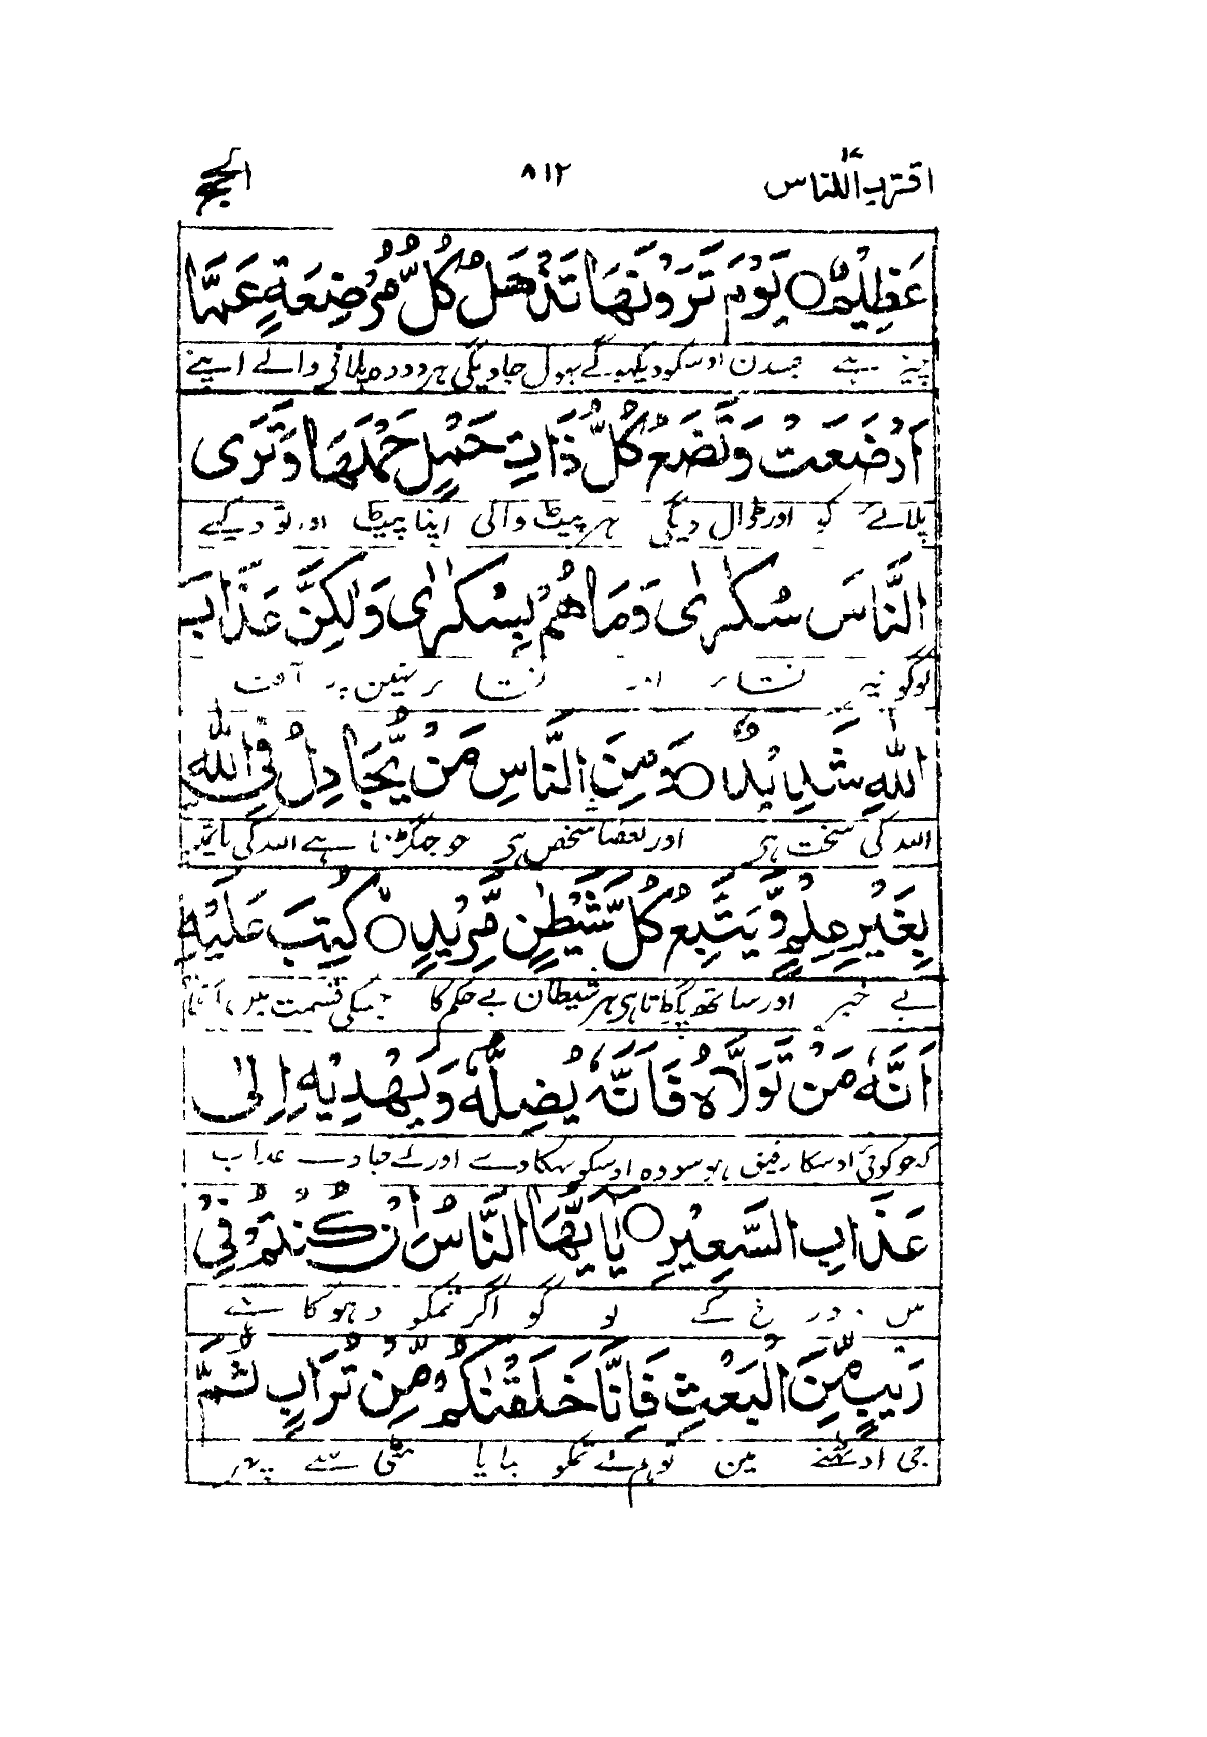 اقترب للناس ۱۷ ۸۱۲ الحج
عَظِيْمٌ ○ يَوْمَ تَرَوْنَهَا تَذْهَلُ كُلُّ مُرْضِعَةٍ عَمَّا
چیز ہے جسدن اوسکو دیکھوگے بھول جاویگی ہر دودہ پلانی والے اپنے
اَرْضَعَتْ وَتَضَعُ كُلُّ ذَاتِ حَمْلٍ حَمْلَهَا وَتَرَى
پلائے کو اور ڈال دیگی ہر پیٹ والی اپنا پیٹ اور تو دیکہے
النَّاسَ سُكٰرٰى وَمَا هُمْ بِسُكٰرٰى وَلٰكِنَّ عَذَابَ
لوگو نپر نشا اور نشا نہین پر آفت
اللّٰهِ شَدِيْدٌ ○ وَمِنَ النَّاسِ مَنْ يُّجَادِلُ فِي اللّٰهِ
اللہ کی سخت ہی اور بعضا شخص ہی جو جھگڑتا ہے اللہ کی
بِغَيْرِ عِلْمٍ وَّيَتَّبِعُ كُلَّ شَيْطٰنٍ مَّرِيْدٍ ○ كُتِبَ عَلَيْهِ
بے خبر اور ساتھ پکڑتا ہی ہر شیطان بے حکم کا جسکی قسمت میں
اَنَّهٗ مَنْ تَوَلَّاهُ فَاَنَّهٗ يُضِلُّهٗ وَيَهْدِيْهِ اِلٰى
کہ جو کوئی اوسکا رفیق ہو سو وہ اوسکو بہکاوے اور لے جاوے عذاب
عَذَابِ السَّعِيْرِ ○ يٰاَيُّهَا النَّاسُ اِنْ كُنْتُمْ فِيْ
میں دوزخ کے لوگو اگر تمکو دہوکا ہے
رَيْبٍ مِّنَ الْبَعْثِ فَاِنَّا خَلَقْنٰكُمْ مِّنْ تُرَابٍ ثُمَّ
جی اوٹھنے مین تو ہم نے تمکو بنایا مٹی سے پھر